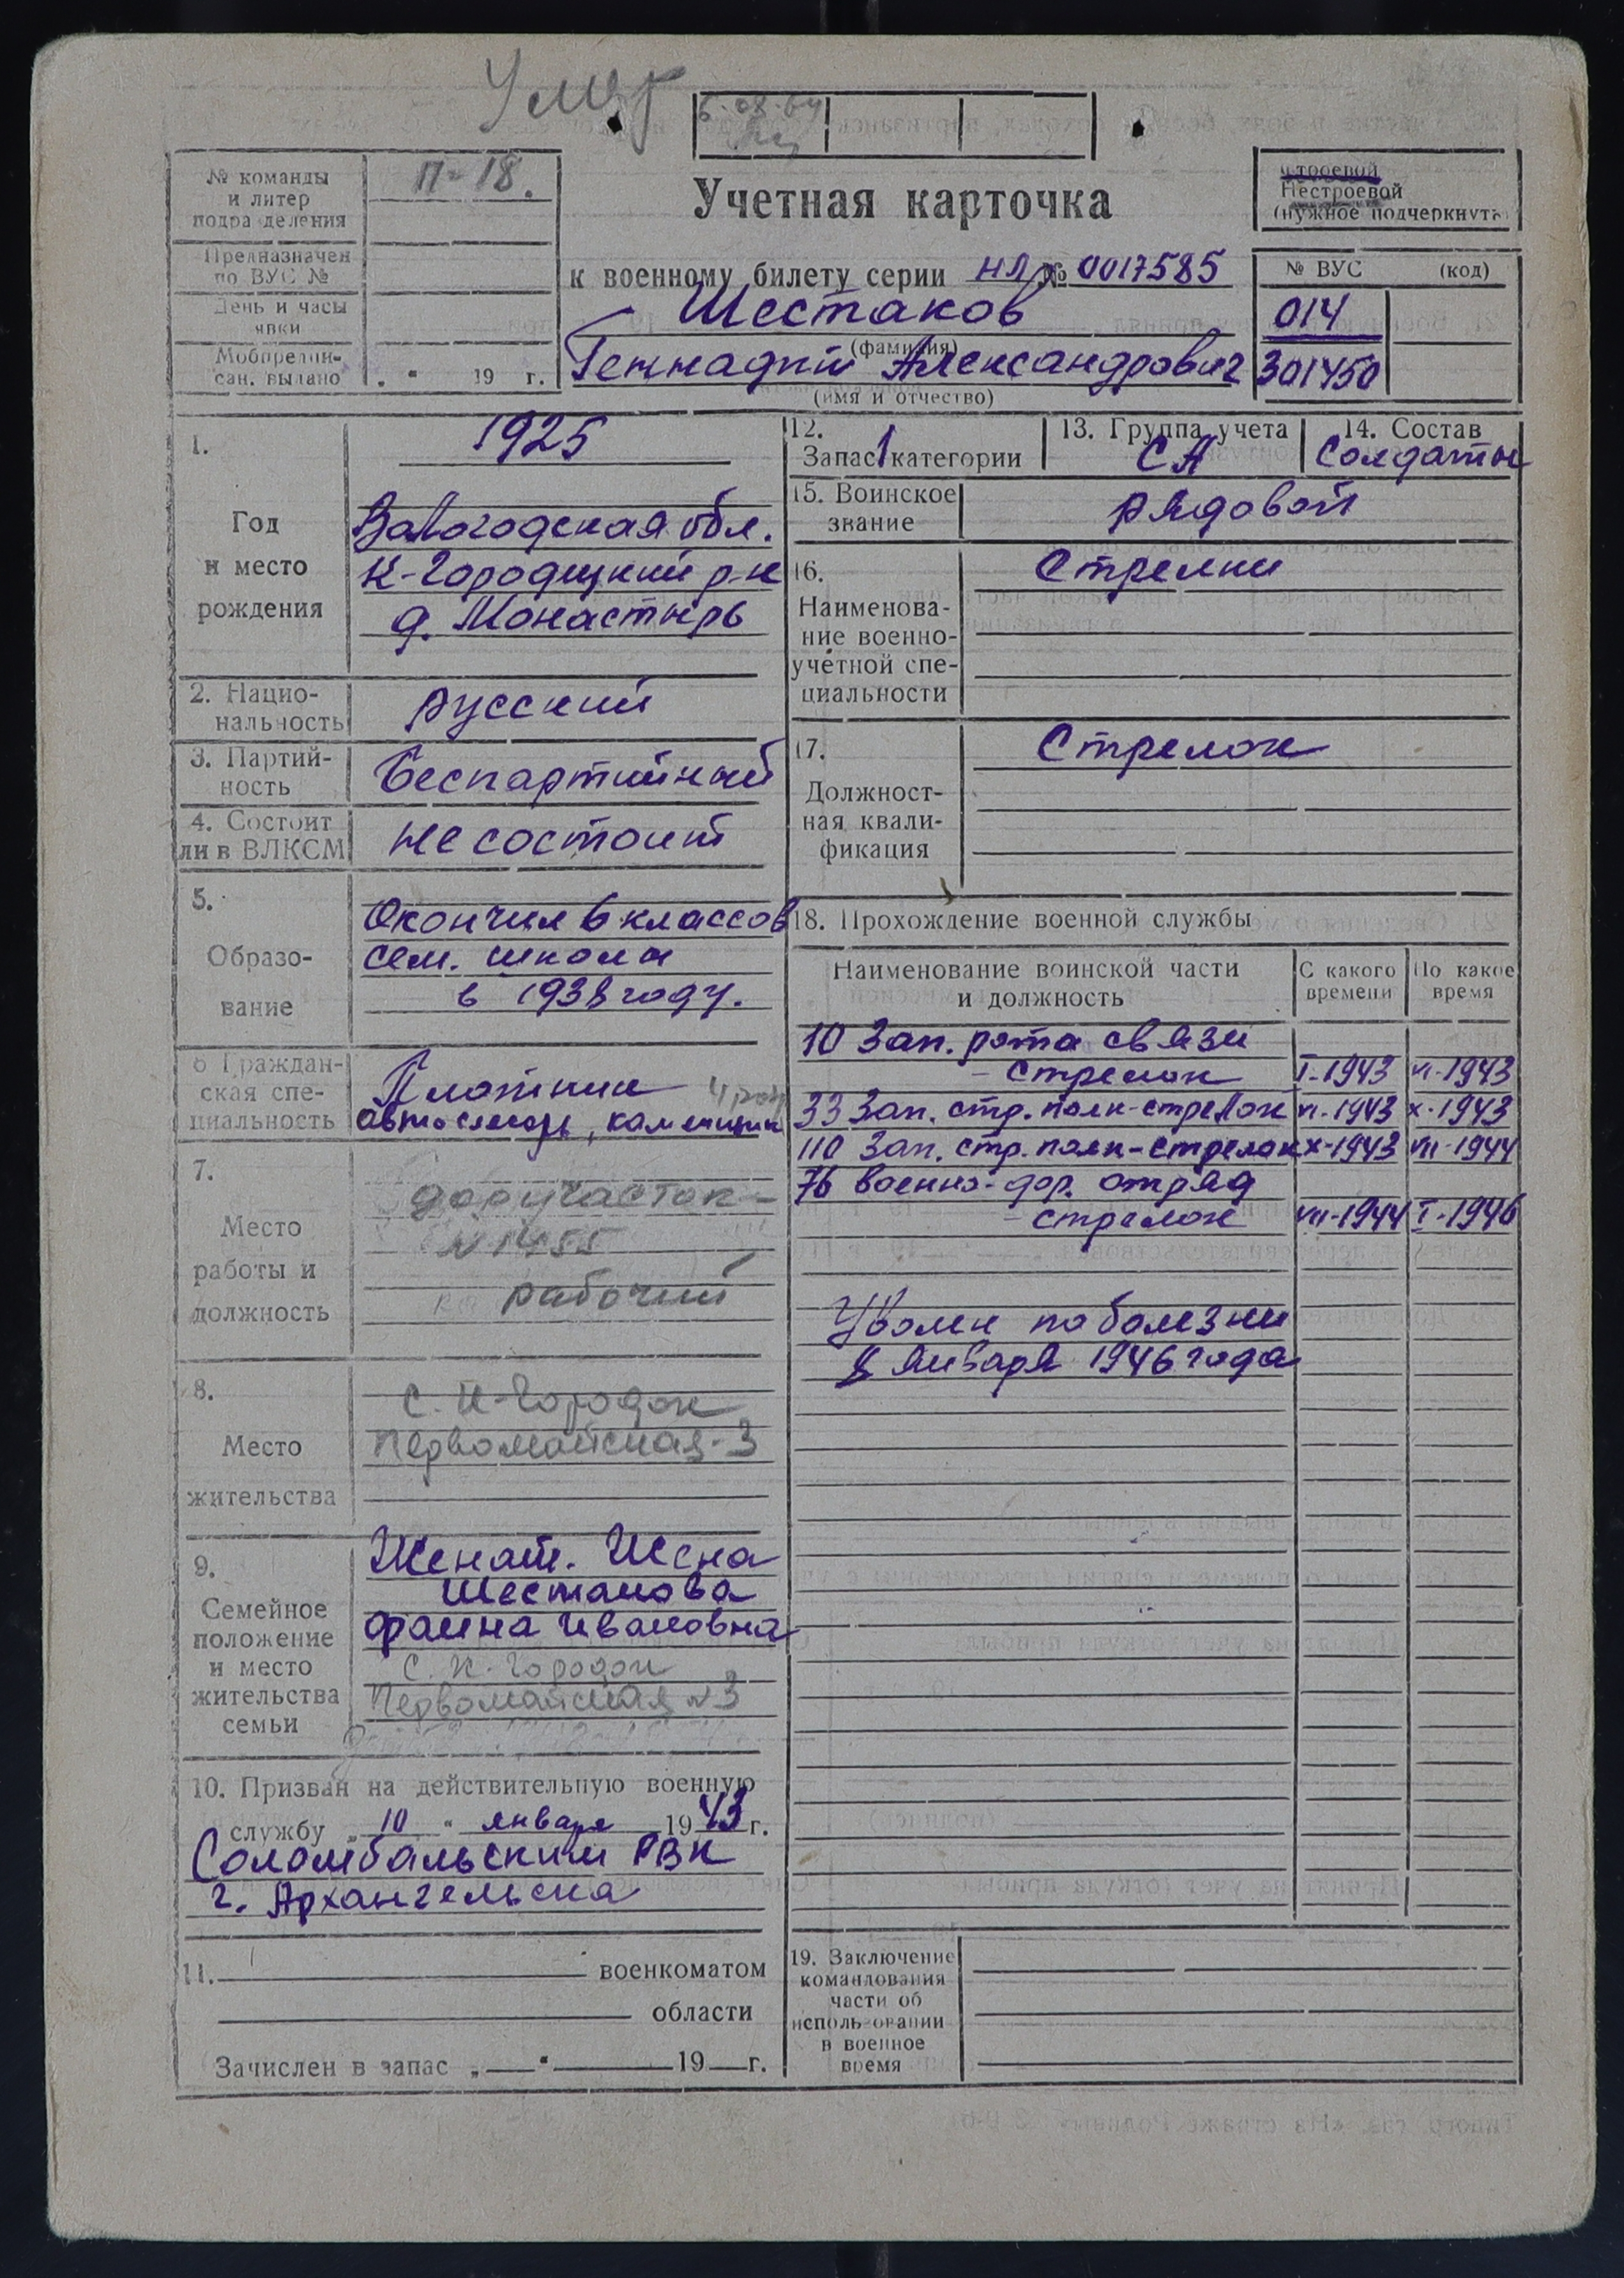 Умер
6.08.64
№ команды
и литер
подразделения
П-18.
Предназначен
по ВУС №
День и часы
явки
Мобпредпи-
сан. выдано
„ “ 19 г.
Учетная карточка
к военному билету серии НЛ № 0017585
Шестаков
(фамилия)
Геннадий Александрович
(имя и отчество)
строевой
Нестроевой
(нужное подчеркнуть)
№ ВУС (код)
014
301450
1.
Год
и место
рождения
1925
Вологодская обл.
К-Городецкий р-н
д. Монастырь
2. Нацио-
нальность
русский
3. Партий-
ность
Беспартийный
4. Состоит
ли в ВЛКСМ
не состоит
5.
Образо-
вание
Окончил 6 классов
сем. школы
в 1938 году.
6 Граждан-
ская спе-
циальность
Плотник 4 раз
автослесарь, каменщик
7.
Место
работы и
должность
доручасток-
№ 1455
рабочий
8.
Место
жительства
с. К-Городок
Первомайская-3
9.
Семейное
положение
и место
жительства
семьи
Женат. Жена
Шестакова
Фаина Ивановна
с. К. Городок
Первомайская №3
10. Призван на действительную военную
службу „ 10 “ января 1943 г.
Соломбальским РВК
г. Архангельска
11. военкоматом
области
Зачислен в запас „ “ 19 г.
12.
Запас 1 категории
13. Группа учета
СА
14. Состав
Солдаты
15. Воинское
звание
рядовой
16.
Наименова-
ние военно-
учетной спе-
циальности
Стрелки
17.
Должност-
ная квали-
фикация
Стрелок
18. Прохождение военной службы
Наименование воинской части
и должность
С какого
времени
По какое
время
10 Зап. рота связи
- стрелок I-1943 VI-1943
33 Зап. стр. полк-стрелок VI-1943 X-1943
110 Зап. стр. полк-стрелок X-1943 VII-1944
76 военно-дор. отряд
- стрелок VII-1944 I-1946
Уволен по болезни
8 января 1946 года
19. Заключение
командования
части об
использовании
в военное
время